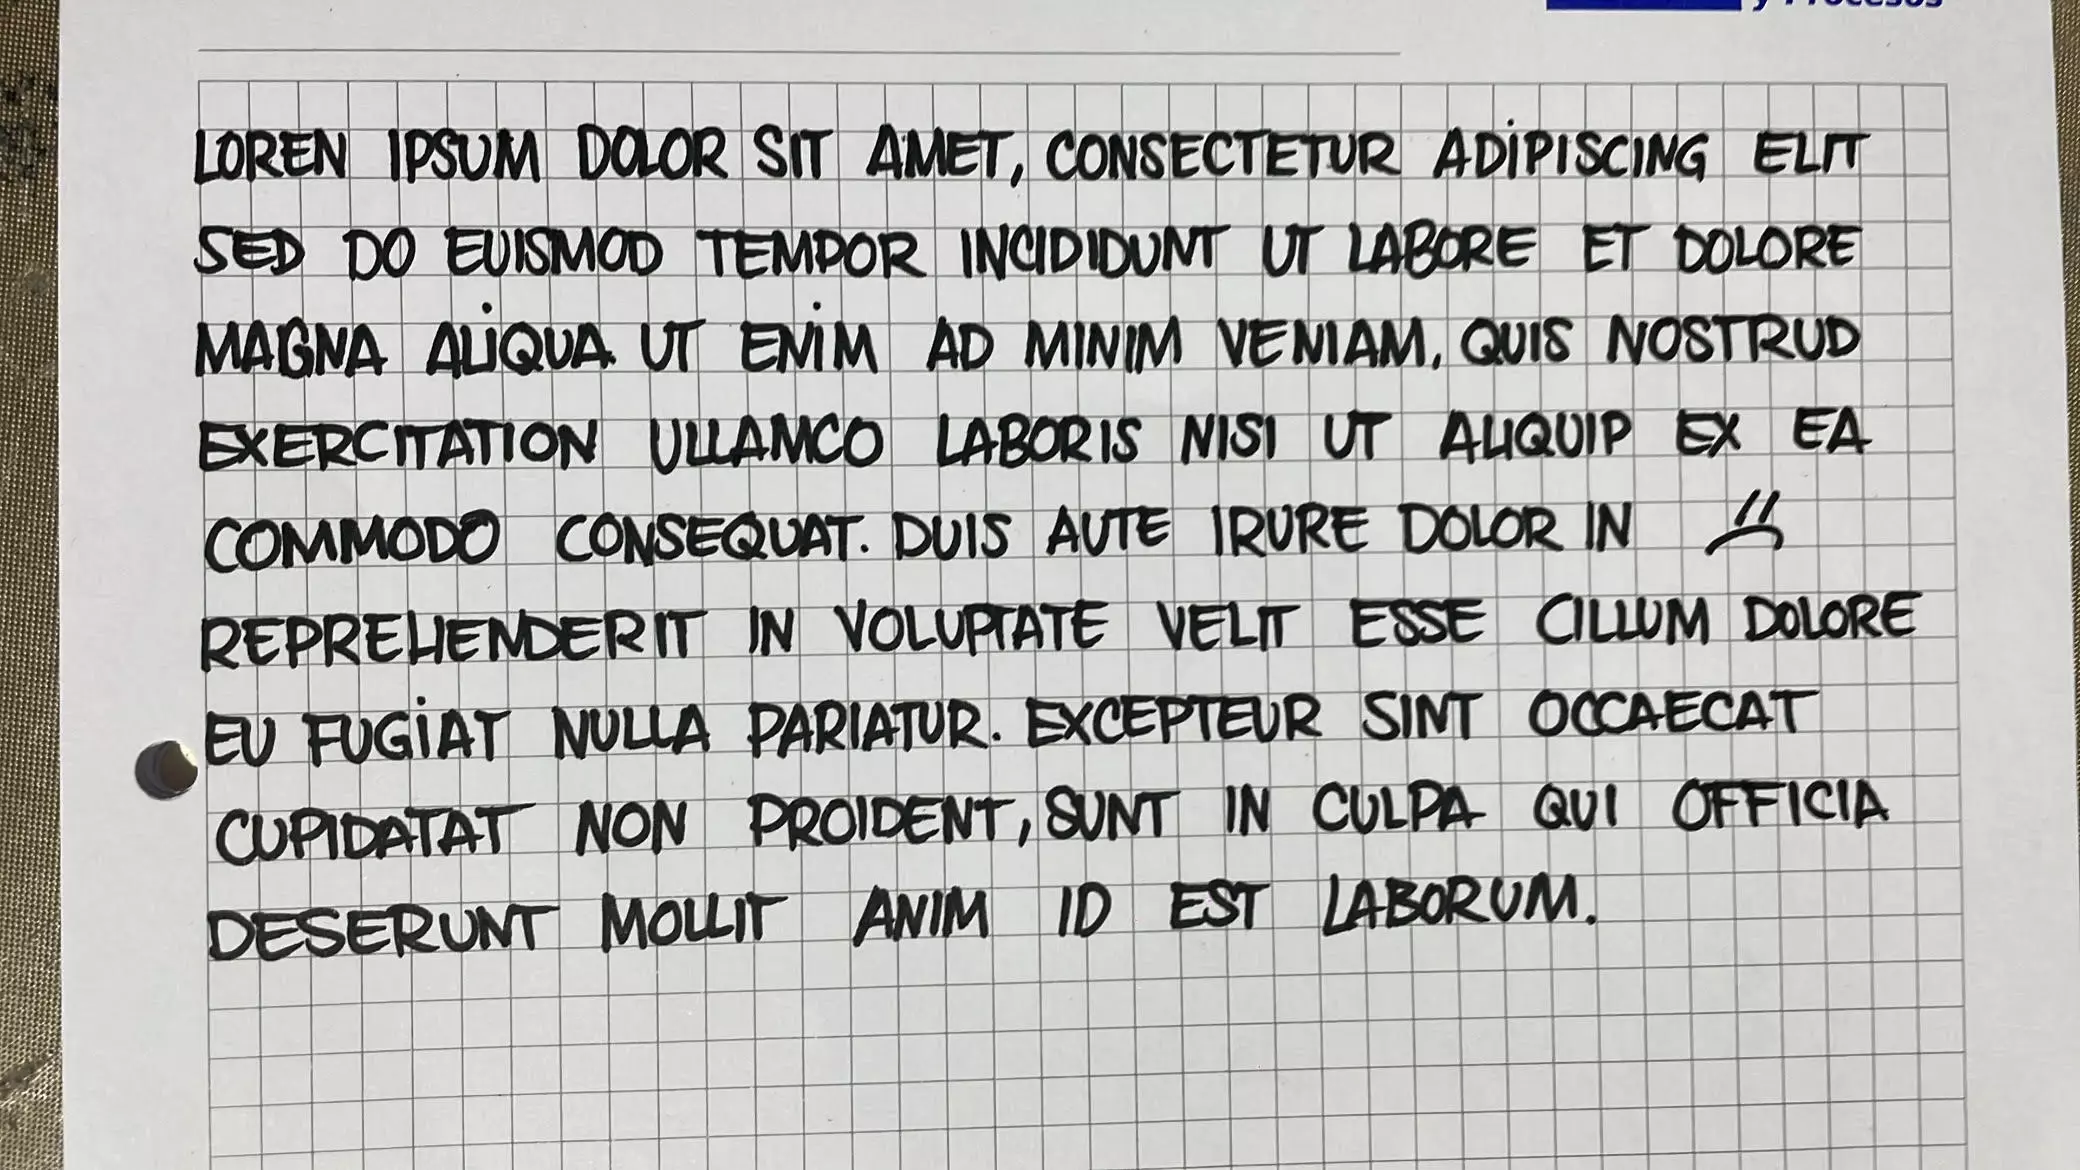 y Procesos
LOREN IPSUM DOLOR SIT AMET, CONSECTETUR ADIPISCING ELIT
SED DO EUISMOD TEMPOR INCIDIDUNT UT LABORE ET DOLORE
MAGNA ALIQUA. UT ENIM AD MINIM VENIAM, QUIS NOSTRUD
EXERCITATION ULLAMCO LABORIS NISI UT ALIQUIP EX EA
COMMODO CONSEQUAT. DUIS AUTE IRURE DOLOR IN
REPREHENDERIT IN VOLUPTATE VELIT ESSE CILLUM DOLORE
EU FUGIAT NULLA PARIATUR. EXCEPTEUR SINT OCCAECAT
CUPIDATAT NON PROIDENT, SUNT IN CULPA QUI OFFICIA
DESERUNT MOLLIT ANIM ID EST LABORUM.